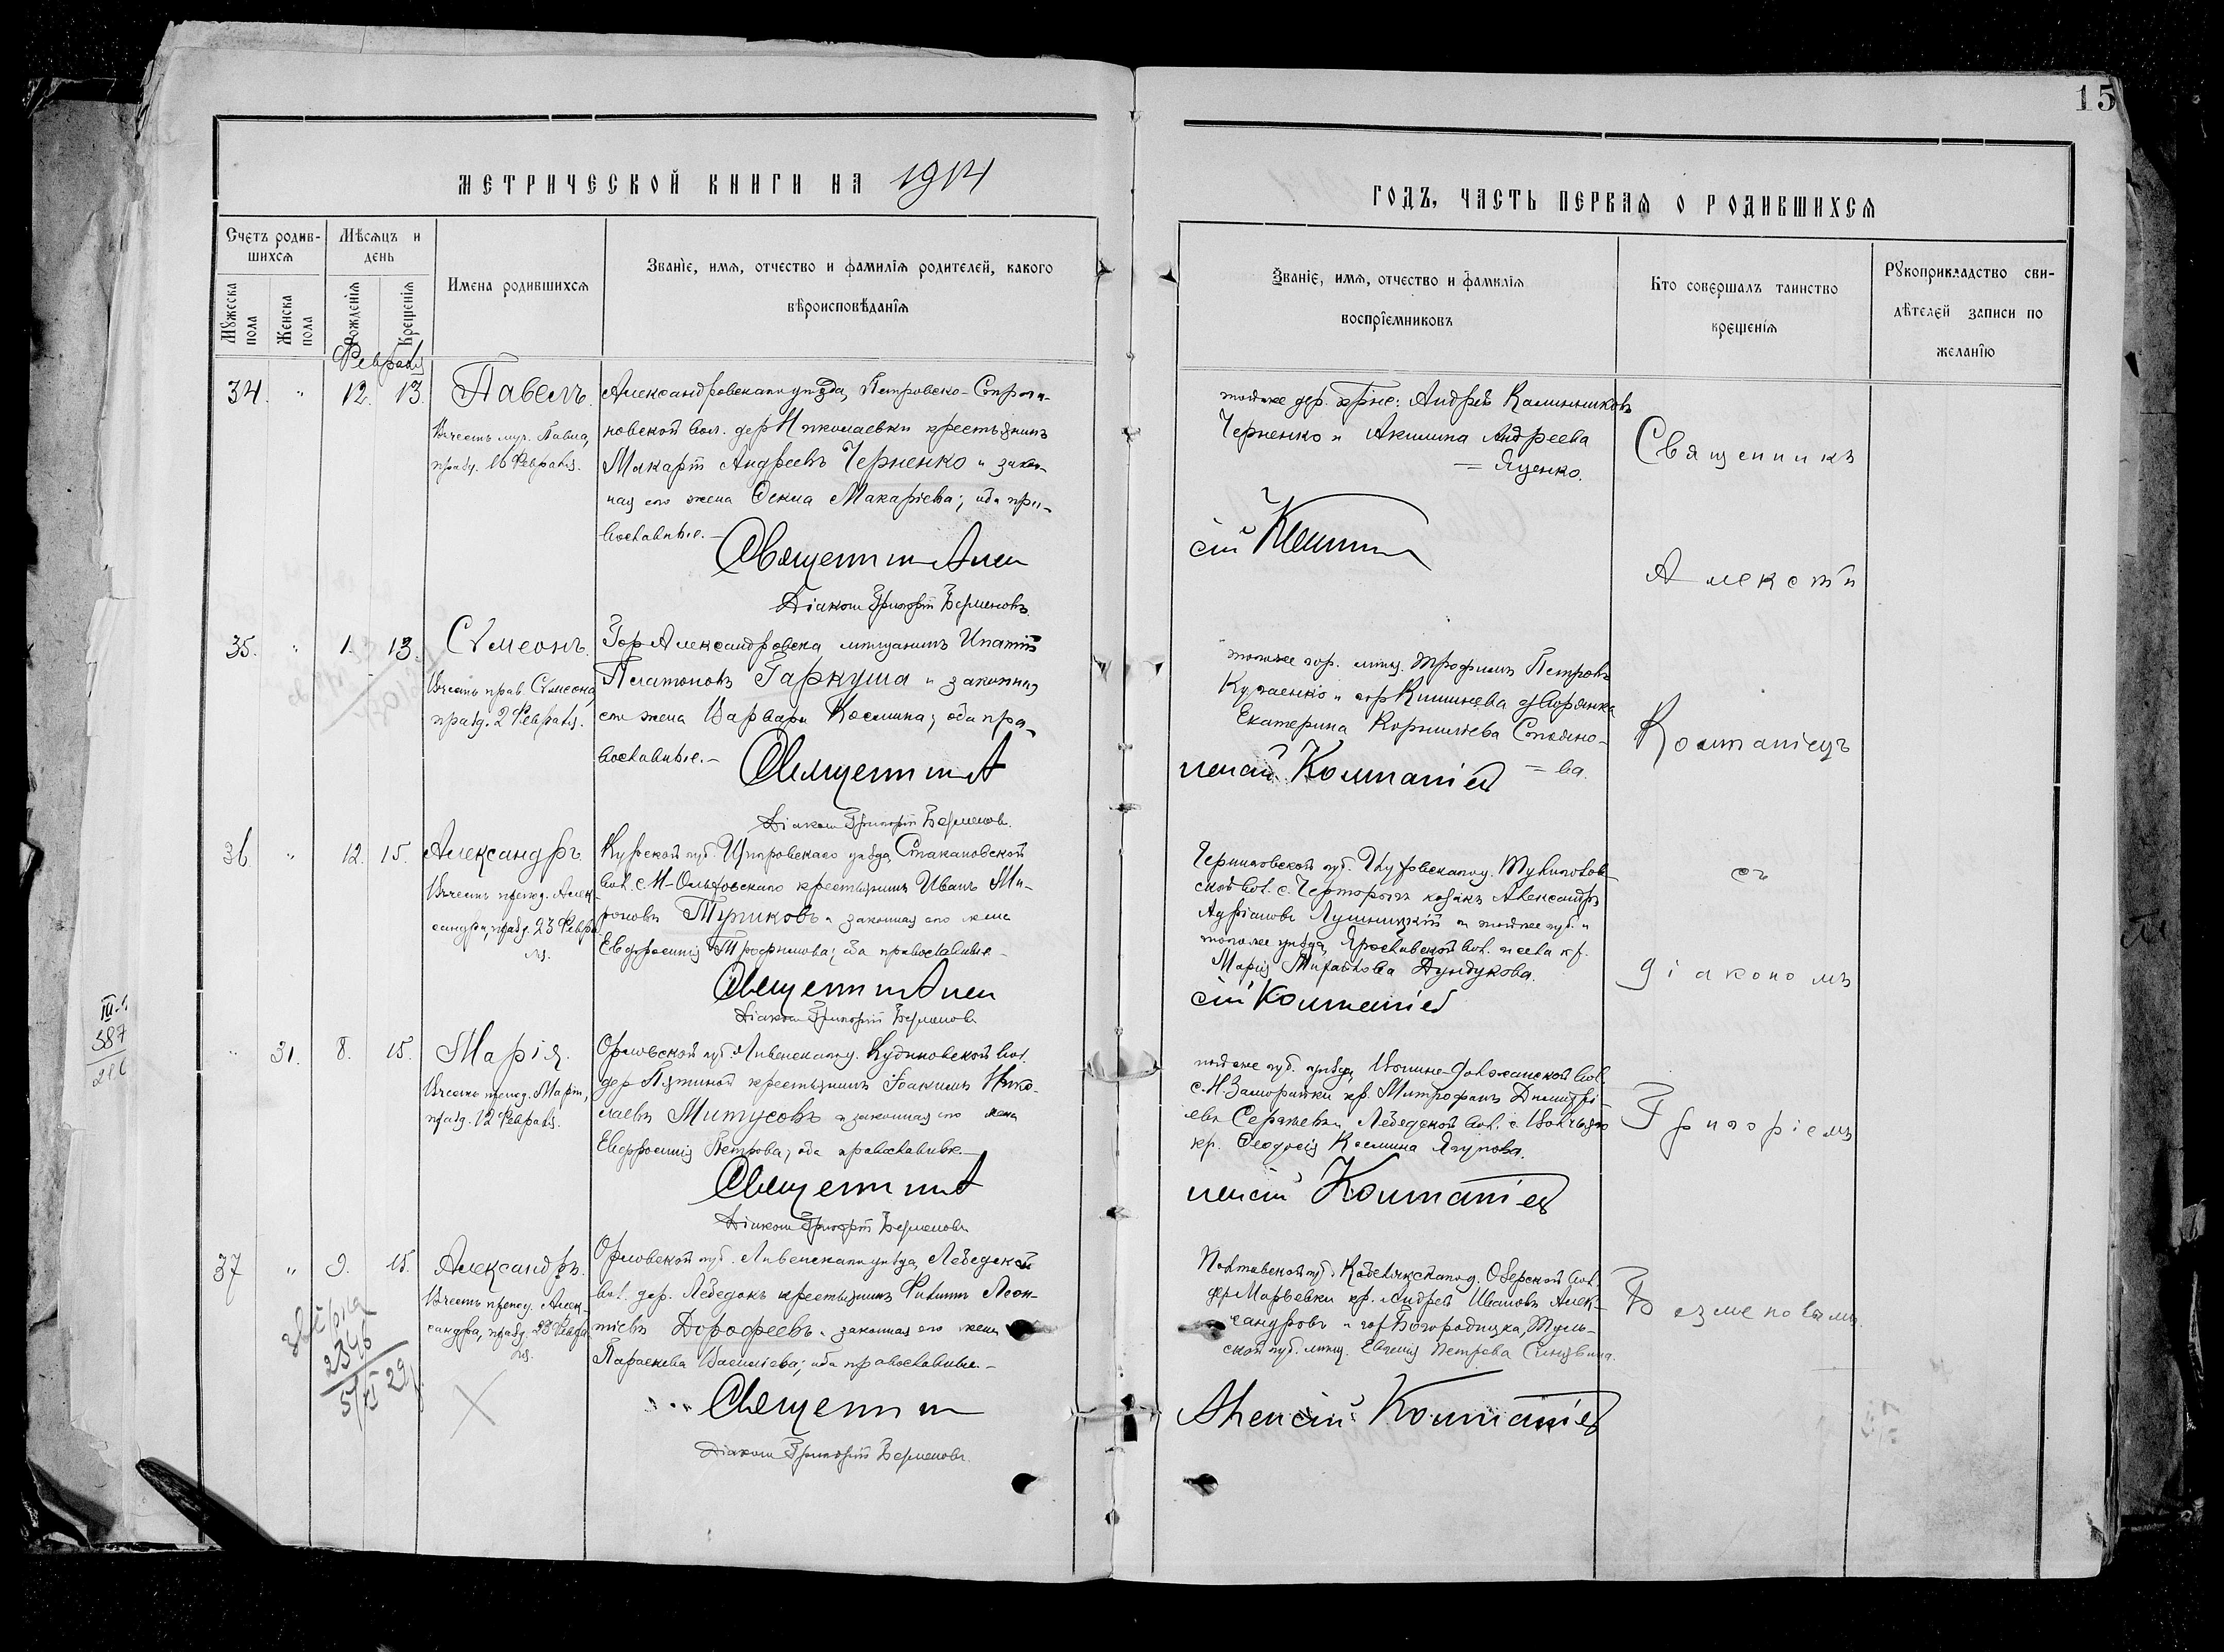 15
МЕТРИЧЕСКОЙ КНИГИ НА 1914
ГОДЪ, ЧАСТЬ ПЕРВАЯ О РОДИВШИХСЯ
Счетъ родив-
шихся
Мужеска пола
Женска пола
Мѣсяцъ и
день
Рожденія
Крещенія
Имена родившихся
Званіе, имя, отчество и фамилія родителей, какого
вѣроисповѣданія
Званіе, имя, отчество и фамилія
воспріемниковъ
Кто совершалъ таинство
крещенія
Рукоприкладство сви-
дѣтелей записи по
желанію
Февраля
34. " 12. 13. Павелъ.
Въ честь муч. Павла,
празд. 16 Февраля.
Александровскаго уѣзда, Петровско-
новской вол. дер Николаевки крестьянинъ
Макарій Андреевъ Черненко и закон-
ная его жена Ѳекла Макаріева; оба пра-
вославные.-
Священникъ Алек
Діаконъ Григорій Безменовъ.
тойже дер. крне: Андрей Калинниковъ
Черненко и Акилина Андреева
= Яценко.
сій
35. " 1. 13. Сѵмеонъ.
Въ честь прав. Сѵмеона,
празд. 2 Февраля.
Гор Александровска мѣщанинъ Ипатій
Платоновъ Гаркуша и законная
его жена Варвара Космина; оба пра-
вославные.-
Священникъ А
Діаконъ Григорій Безменовъ.
тогоже гор. мѣщ. Трофимъ Петровъ
и гор Кишинева дворянка
Екатерина Корниліева Стояно-
= ва.
лексій Компаніец
36. " 12. 15. Александръ.
Въ честь препод. Алек-
сандра, празд. 23 Февра-
ля.
Курской губ. Щигровскаго уѣзда, Стакановской
вол. с. М-Ольховскаго крестьянинъ Иванъ Ми-
роновъ Туриковъ и законная его жена
Евфросинія Трофимова; оба православные.-
Священникъ Алек
Діаконъ Григорій Безменовъ
Черниговской губ. Глуховскаго у. Тулиголов-
ской вол. с. Черторыги козакъ Александръ
Адріановъ и тойже губ. и
тогоже уѣзда, Ярославской вол. и села кр.
Марія Михайлова Дундукова.
сій Компаніец
" 31. 8. 15. Марія.
Въ честь препод. Маріи,
празд. 12 Февраля.
Орловской губ. Ливенскаго у. Кудиновской вол.
дер Пятиной крестьянинъ Іоакимъ Нико-
лаевъ Митусовъ и законная его жена
Евфросинія Петрова; оба православные.-
Священникъ А
Діаконъ Григорій Безменовъ
тойже губ. уѣзда, вол.
кр. Митрофанъ Димитрі-
евъ Лебедской вол. с.
кр. Ѳеодосія Космина Ягупова.
лексій Компаніец
37 " 9. 15. Александръ.
Въ честь препод. Алек-
сандра, празд. 23 Февра-
ля.
Орловской губ. Ливенскаго уѣзда, Лебедской
вол. дер. Лебедокъ крестьянинъ Филиппъ Леон-
тіевъ Дорофеевъ и законная его жена
Параскева Василіева; оба православные.-
Священникъ
Діаконъ Григорій Безменовъ.
Полтавской губ. Кобелякскаго у. Озерской вол.
дер Марьевки кр. Андрей Ивановъ Алек-
сандровъ и гор Богородицка, Туль-
ской губ. мѣщ. Евгенія Петрова
Алексій Компаніец
2346
Священникъ
Алексѣй
Компаніецъ
съ
діакономъ
Григоріемъ
Безменовымъ.